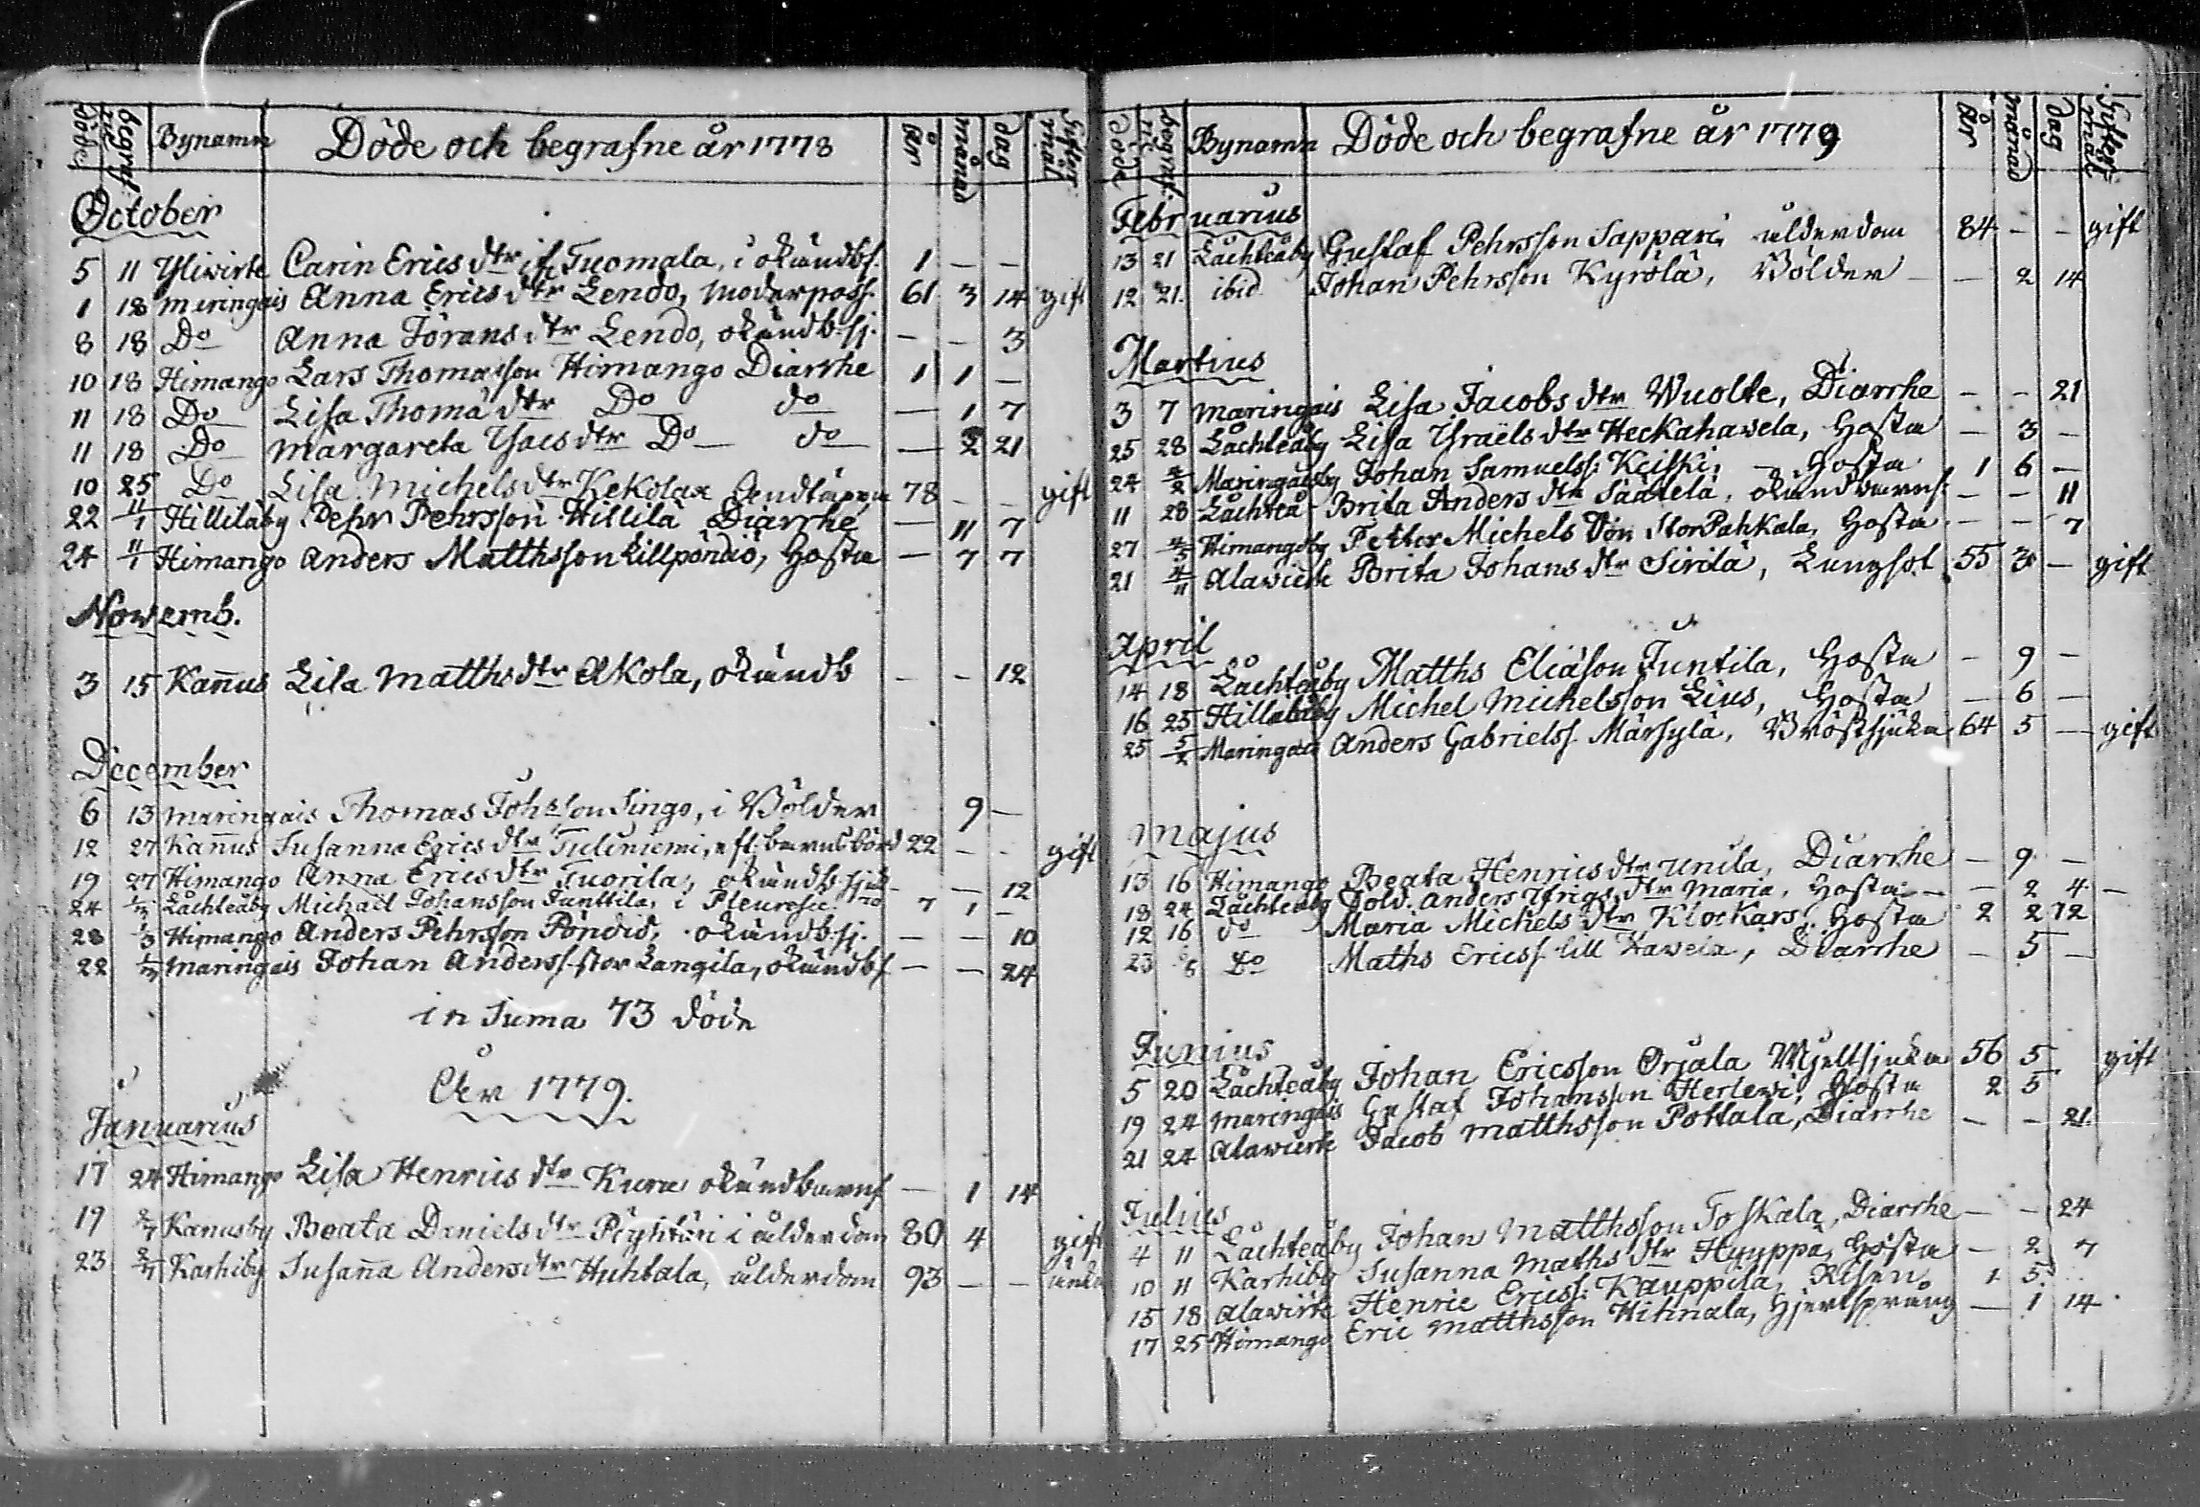 Döde begraf: Bynamn Döde och begrafne år 1778 År månad dag Gifter mål
October
5 11 Yliwirte Carin Erics dtr Tuomala, i okändbs. 1 — —
1 18 maringais Anna Erics dtr Lendo, moderpass. 61 3 14 gift
8 18 Do Anna Jörans dtr Lendo, okändb.sj. — — 3
10 18 Himango Lars Thomasson Himango Diarrhe 1 1 —
11 18 Do Lisa Thomä dtr Do do — 1 7
11 18 Do Margareta Ysacs dtr Do do — 2 21
10 25 Do Lisa Michels dtr Kekolax Andtäppa 78 — — gift
22 11/1 Hilliläby Pehr Pehrsson Hillilä Diarrhe — 11 7
24 11/1 Himango Anders Matthsson Lillpöndiö, Hosta — 7 7
Novemb.
3 15 Kañus Lisa Matths dtr Akola, okändb — — 12
December
6 13 maringais Thomas Johsson Singo, i Bölder 9 —
12 27 Kañus Susanna Erics dtr Tuliniemi, eft. barnsbörd 22 — — gift
19 27 Himango Anna Erics dtr Tuorila, okändb. sjuk — — 12
24 Låchteåby Michael Johansson Junttila, i Pleuresie 7 1 —
28 1/3 Himango Anders Pehrsson Pöndiö, okändb.sj. — — 10
22 maringais Johan Anderss. stor Langila, okändbs — — 24
in Suma 73 döde
År 1779.
Januarius
17 24 Himango Lisa Henrics dtr Kura okändbarns — 1 14
19 2/7 Kanusby Beata Daniels dtr Pöyhtöri i ålderdom 80 4 gift
23 2/7 Karhiby Susaña Anders dtr Huhtala, ålderdom 93 — — änka
Döde begraf: Bynamn Döde och begrafne år 1779 År månad dag Gifter mål
Februarius
13 21 Låchteåby Gustaf Pehrsson Sappari, ålderdom 84 — — gift
12 21. ibid Johan Pehrsson Kyrölä, Bölder — 2 14
Martius
3 7 maringais Lisa Jacobs dtr Wuolte, Diarrhe — — 21
25 28 Låchteåby Lisa Ysraëls dtr Heckahawela, Hosta — 3 —
24 4/2 Maringaisby Johan Samuelss: Keiski, Hosta 1 6 —
11 28 Låchteå Brita Anders dtr Säätelä, okändbarns: — — 11
27 4/5 Himangoby Petter Michels Son StorPahkala, Hosta — — 7
21 4/11 Alawirte Brita Johans dtr Sirilä, Lungsot 55 3 — gift
April
14 18 Låchteåby Matths Eliäson Juntila, Hosta — 9 —
16 25 Hilliläby Michel Michelsson Lius, Hosta — 6 —
25 5/2 Maringais Anders Gabrielss. Märsylä, Bröstsjuka 64 5 — gift
majus
13 16 Himango Beata Henrics dtr Unila, Diarrhe — 9 —
18 24 Låchteåby Sold. Anders Ifrigs dtr Maria, Hosta — 2 4 —
12 16 do Maria Michels dtr Klockars, Hosta 2 2 12
23 Do Maths Ericss. lill Hawela, Diarrhe — 5 —
Junius
5 20 Låchteåby Johan Ericsson Orjala Mjeltsjuka 56 5 gift
19 24 maringais Gustaf Johansson Herlewi, Hosta 2 5
21 24 Alawirte Jacob Matthsson Pottala, Diarrhe — — 21.
Julius
4 11 Låchteåby Johan Matthsson Toskala, Diarrhe — — 24
10 11 Karhiby Susanna Maths dtr Hyyppä, Hosta — 2 7
15 18 Alawirte Henric Ericss: Kauppila, Risen. 1 5.
17 25 Himango Eric Matthsson Hihnala, Hjertsprång — 1 14